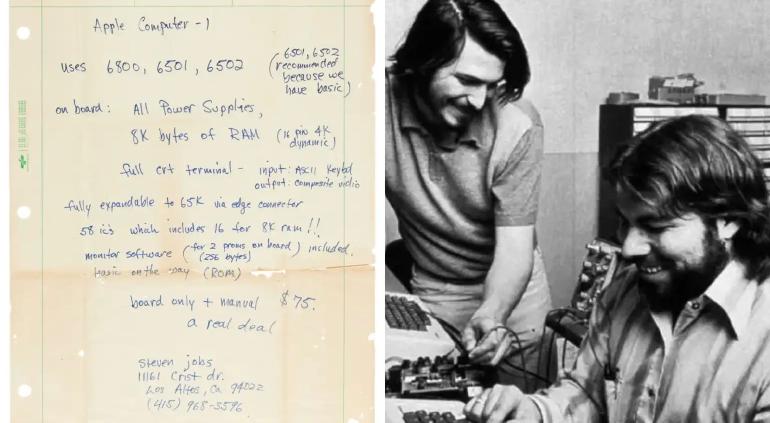 Apple Computer-1
uses 6800, 6501, 6502
(6501, 6502
recommended
because we
have basic)
on board: All Power Supplies,
8K bytes of RAM (16 pin 4K
dynamic)
full crt terminal - input: ASCII Keybd
output: composite vidio
fully expandable to 65K via edge connector
58 ic's which includes 16 for 8K ram!!
monitor software (for 2 proms on board) included.
(256 bytes)
basic on the way (ROM)
board only + manual $75.
a real deal
Steven jobs
11161 Crist dr.
Los Altos, Ca 94022
(415) 968-3596